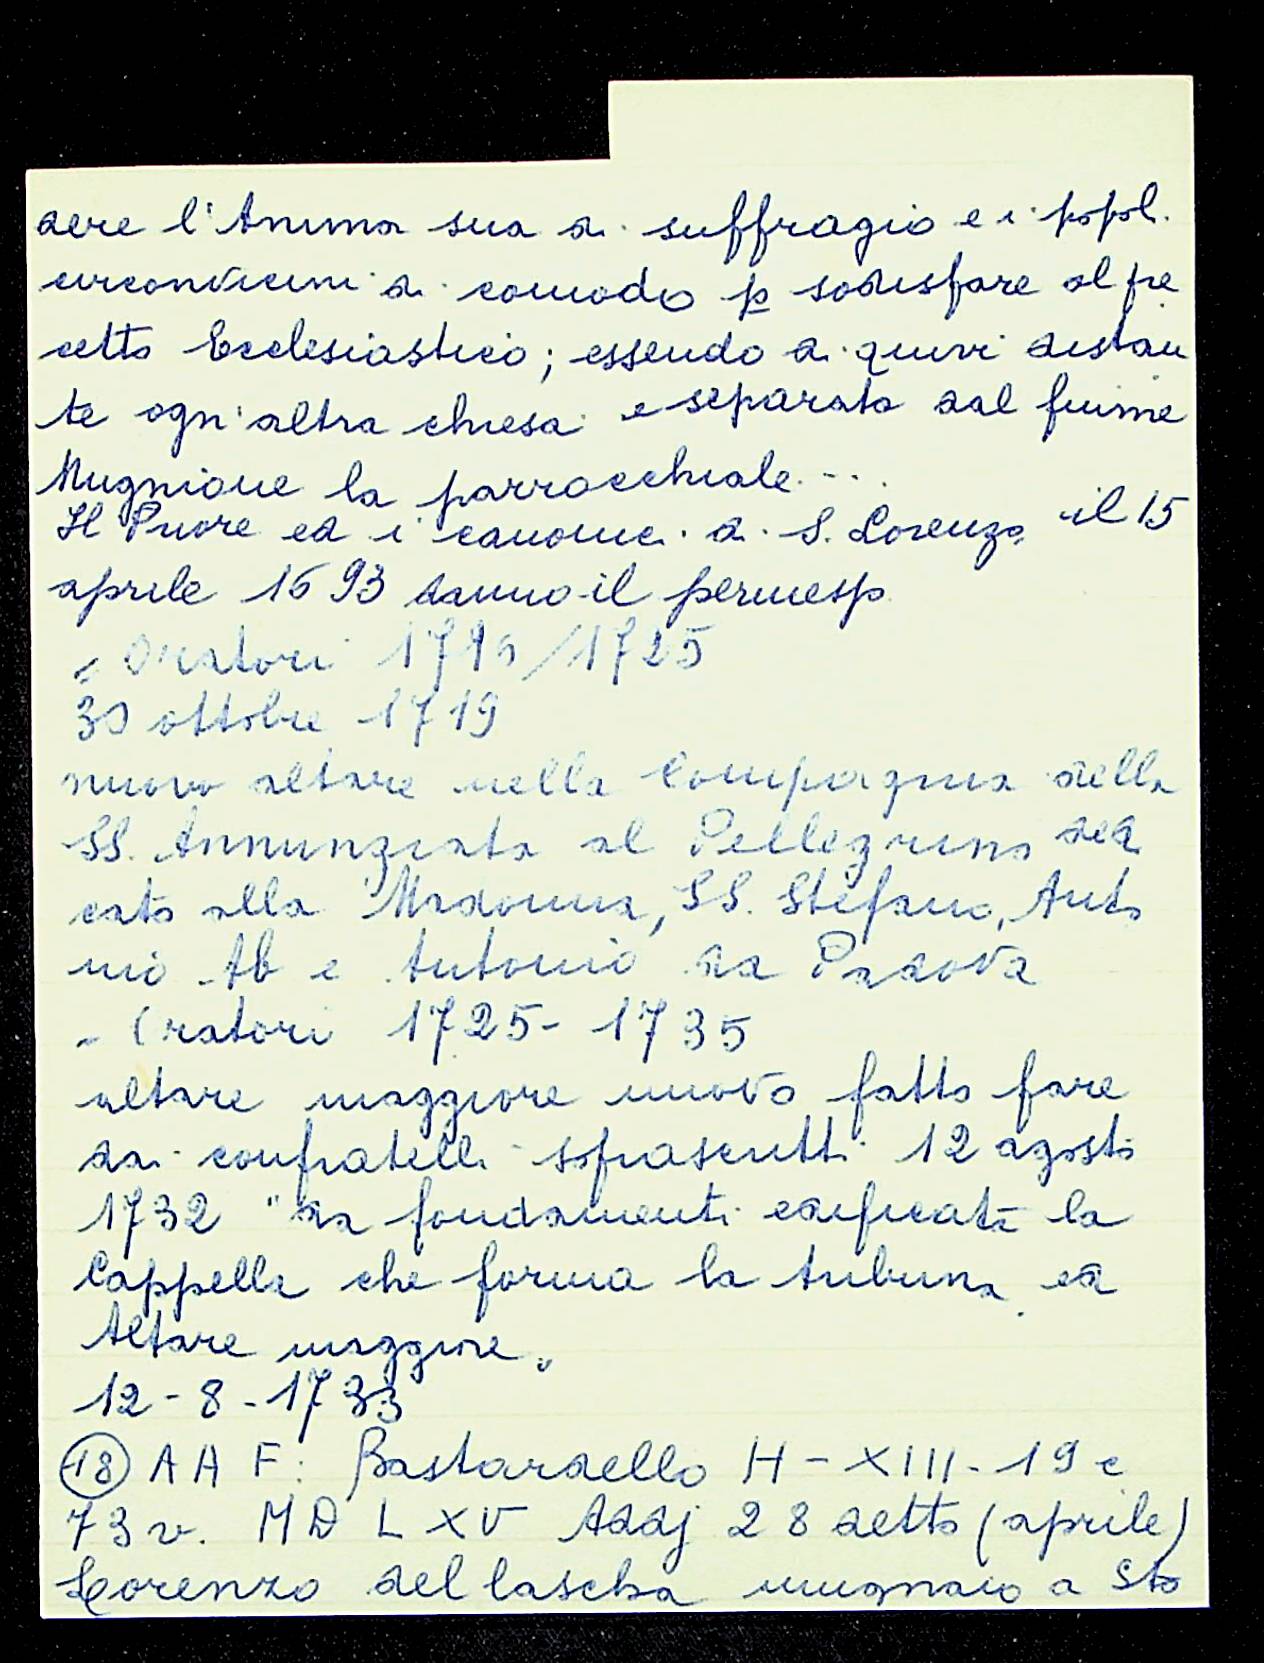 dere l'Anima sua di suffragio e i popol.
circonvicini di comodo p sodisfare al pre
cetto Ecclesiastico; essendo di quivi distan
te ogn'altra chiesa e separata dal fiume
Mugnione la parrocchiale...
Il Priore ed i canonici di S. Lorenzo il 15
aprile 1693 danno il permesso
- Oratori /1725
30 ottobre 1719
nuovo altare nella Compagnia della
SS. Annunziata al Pellegrino ded
cato alla Madonna, SS. Stefano, Anto
nio Ab e Antonio da Padova
- Oratori 1725-1735
altare maggiore nuovo fatto fare
dai confratelli soprascritti 12 agosto
1732 "da fondamenti edificata la
Cappella che forma la tribuna ed
Altare maggiore"
12-8-1733
(18) AAF: Bastardello H-XIII-19 c
73v. MDLXV Addj 28 detto (aprile)
Lorenzo del lascha mugnaio a Sto